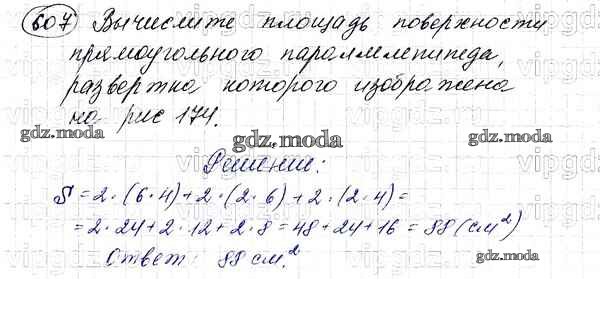 607 Вычислите площадь поверхности
прямоугольного параллелепипеда,
развертка которого изображена
на рис 174.
gdz.moda
gdz.moda
gdz.moda
Решение:
S = 2·(6·4)+2·(2·6)+2·(2·4)=
= 2·24+2·12+2·8=48+24+16=88(см²)
gdz.moda
Ответ: 88 см.²